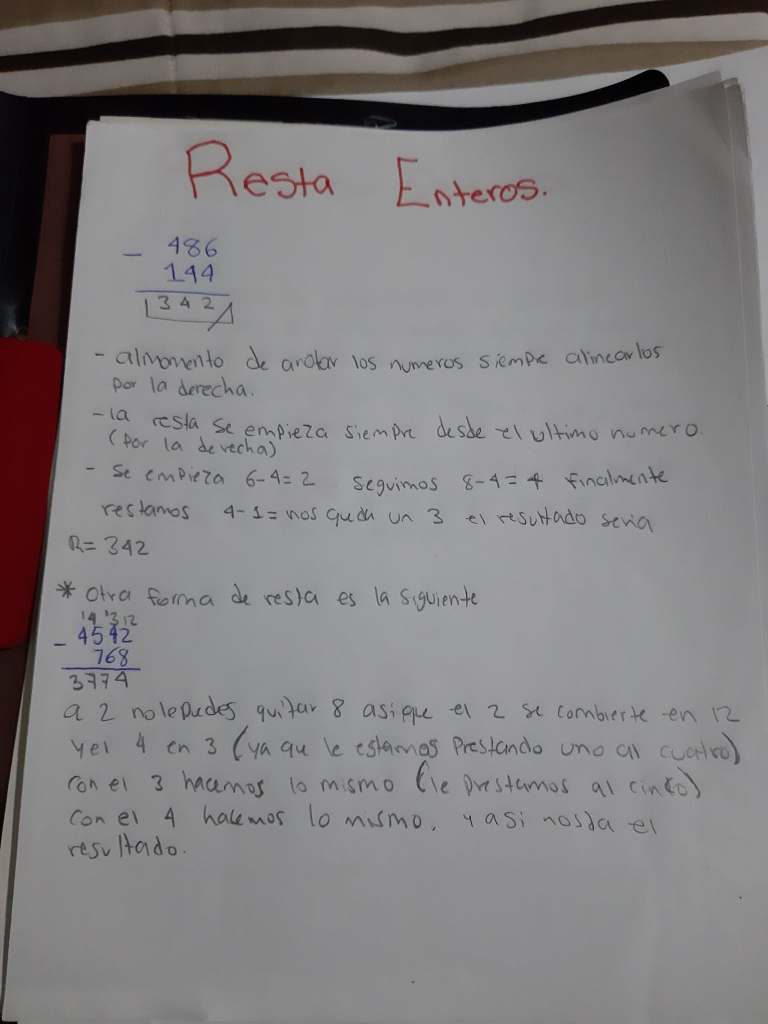 Resta Enteros.
- 486
144
342
- al momento de anotar los numeros siempre alinearlos
por la derecha.
- la resta se empieza siempre desde el ultimo numero
(por la derecha)
- se empieza 6-4=2 seguimos 8-4=4 finalmente
restamos 4-1= nos queda un 3 el resultado seria
R= 342
* otra forma de resta es la siguiente
'4 '3 12
- 4542
768
3774
a 2 no le puedes quitar 8 asi que el 2 se combierte en 12
y el 4 en 3 (ya que le estamos prestando uno al cuatro)
con el 3 hacemos lo mismo (le prestamos al cinco)
con el 4 hacemos lo mismo, y asi nos da el
resultado.